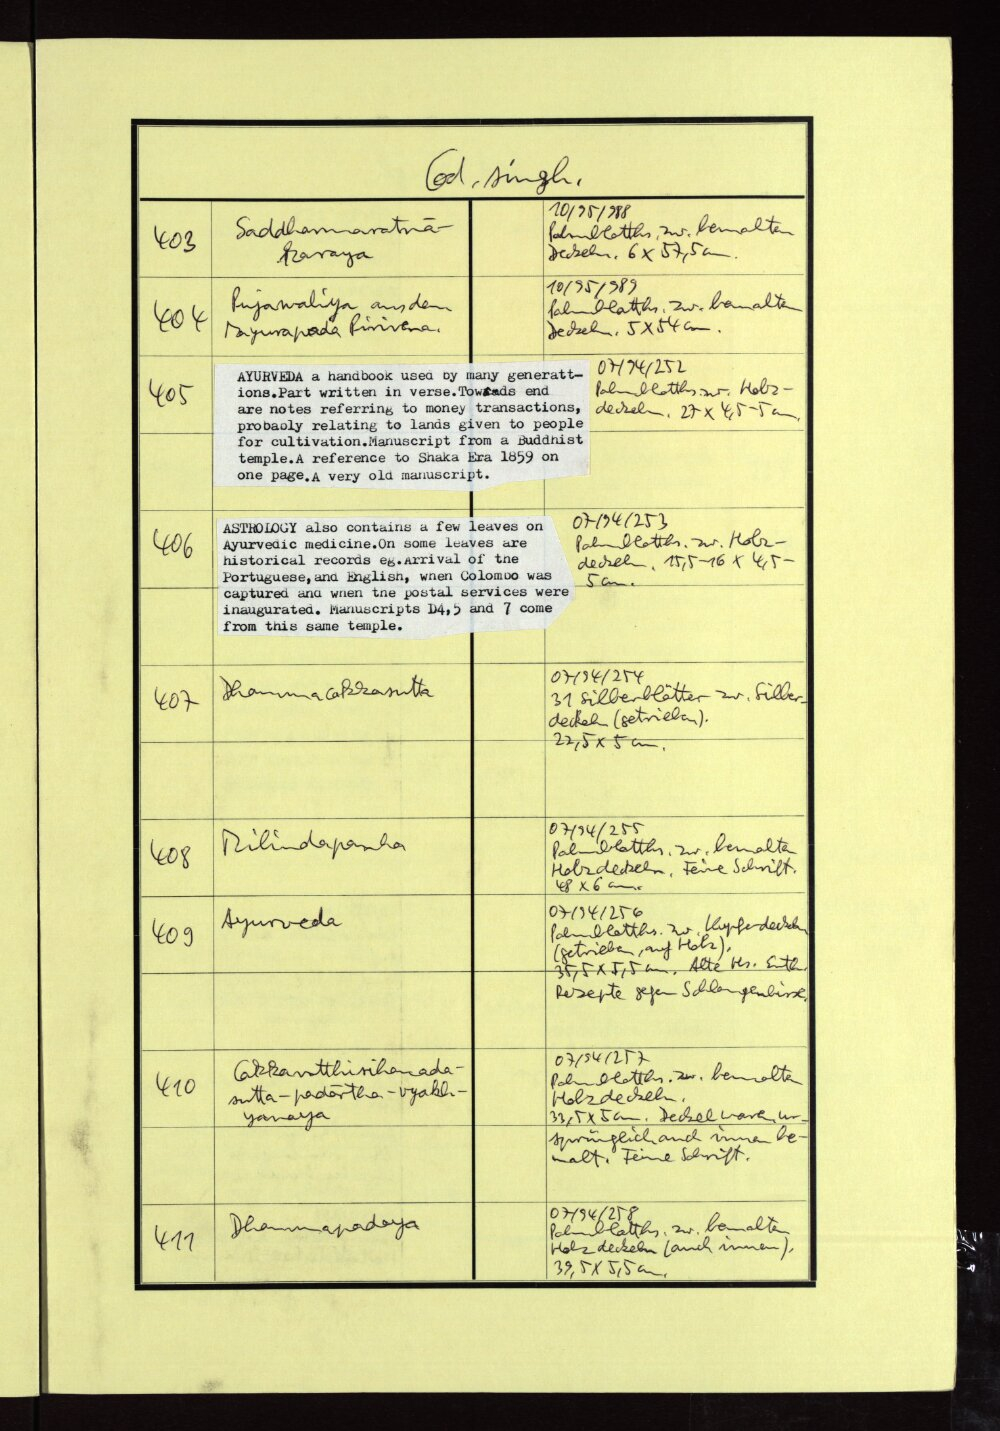 Cod. singh.
403
Saddhammaratnā-
karaya
10/95/988
Palmblatths. zw. bemalten
Deckeln. 6 x 57,5 cm.
404
Pujawaliya aus dem
Mayurapada Pirivena.
10/95/989
Palmblatths. zw. bemalten
Deckeln. 5 x 54 cm.
405
AYURVEDA a handbook used by many generatt-
ions.Part written in verse.Towards end
are notes referring to money transactions,
probably relating to lands given to people
for cultivation.Manuscript from a Buddhist
temple.A reference to Shaka Era 1859 on
one page.A very old manuscript.
07/94/252
Palmblatths. zw. Holz-
deckeln. 27 x 4,5-5 cm.
406
ASTROLOGY also contains a few leaves on
Ayurvedic medicine.On some leaves are
historical records eg.Arrival of the
Portuguese,and English, when Colombo was
captured and when the postal services were
inaugurated. Manuscripts D4,5 and 7 come
from this same temple.
07/94/253
Palmblatths. zw. Holz-
deckeln. 15,5-16 x 4,5-
5 cm.
407
Dhammacakkasutta
07/94/254
31 Silberblätter zw. Silber-
deckeln (getrieben).
22,5 x 5 cm.
408
Milindapanha
07/94/255
Palmblatths. zw. bemalten
Holzdeckeln. Feine Schrift.
48 x 6 cm.
409
Ayurveda
07/94/256
Palmblatths. zw. Kupferdeckeln
(getrieben, auf Holz).
35,5 x 5,5 cm. Alte Hs. Enth.
Rezepte gegen Schlangenbisse.
410
Cakkavatthisihanada-
sutta-padārtha-vyakh-
yanaya
07/94/257
Palmblatths. zw. bemalten
Holzdeckeln.
33,5 x 5 cm. Deckel waren ur-
sprünglich auch innen be-
malt. Feine Schrift.
411
Dhammapadaya
07/94/258
Palmblatths. zw. bemalten
Holzdeckeln (auch innen).
39,5 x 5,5 cm.